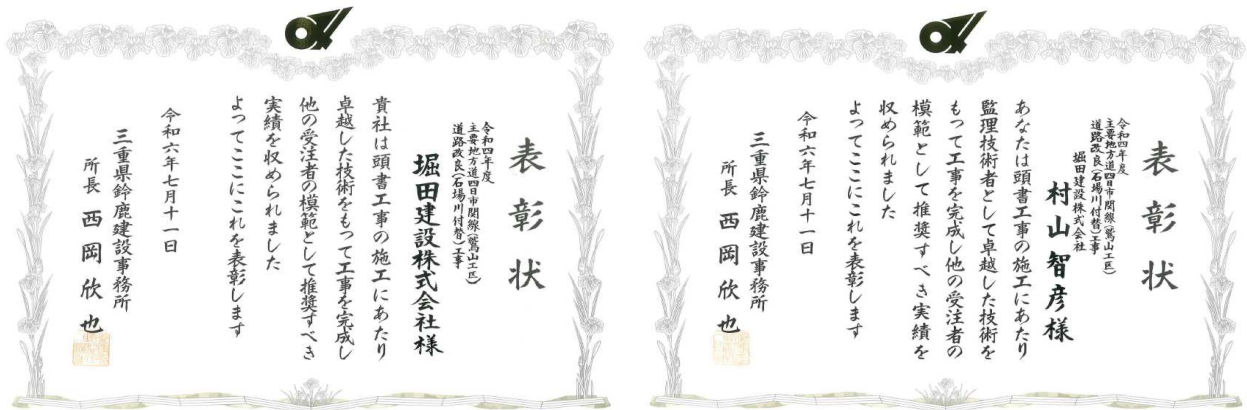 表彰状
令和四年度
主要地方道四日市関線（鷲山工区）
道路改良（石場川付替）工事
堀田建設株式会社様
貴社は頭書工事の施工にあたり
卓越した技術をもって工事を完成し
他の受注者の模範として推奨すべき
実績を収められました
よってここにこれを表彰します
令和六年七月十一日
三重県鈴鹿建設事務所
所長 西岡欣也
表彰状
令和四年度
主要地方道四日市関線（鷲山工区）
道路改良（石場川付替）工事
堀田建設株式会社
村山智彦様
あなたは頭書工事の施工にあたり
監理技術者として卓越した技術を
もって工事を完成し他の受注者の
模範として推奨すべき実績を
収められました
よってここにこれを表彰します
令和六年七月十一日
三重県鈴鹿建設事務所
所長 西岡欣也